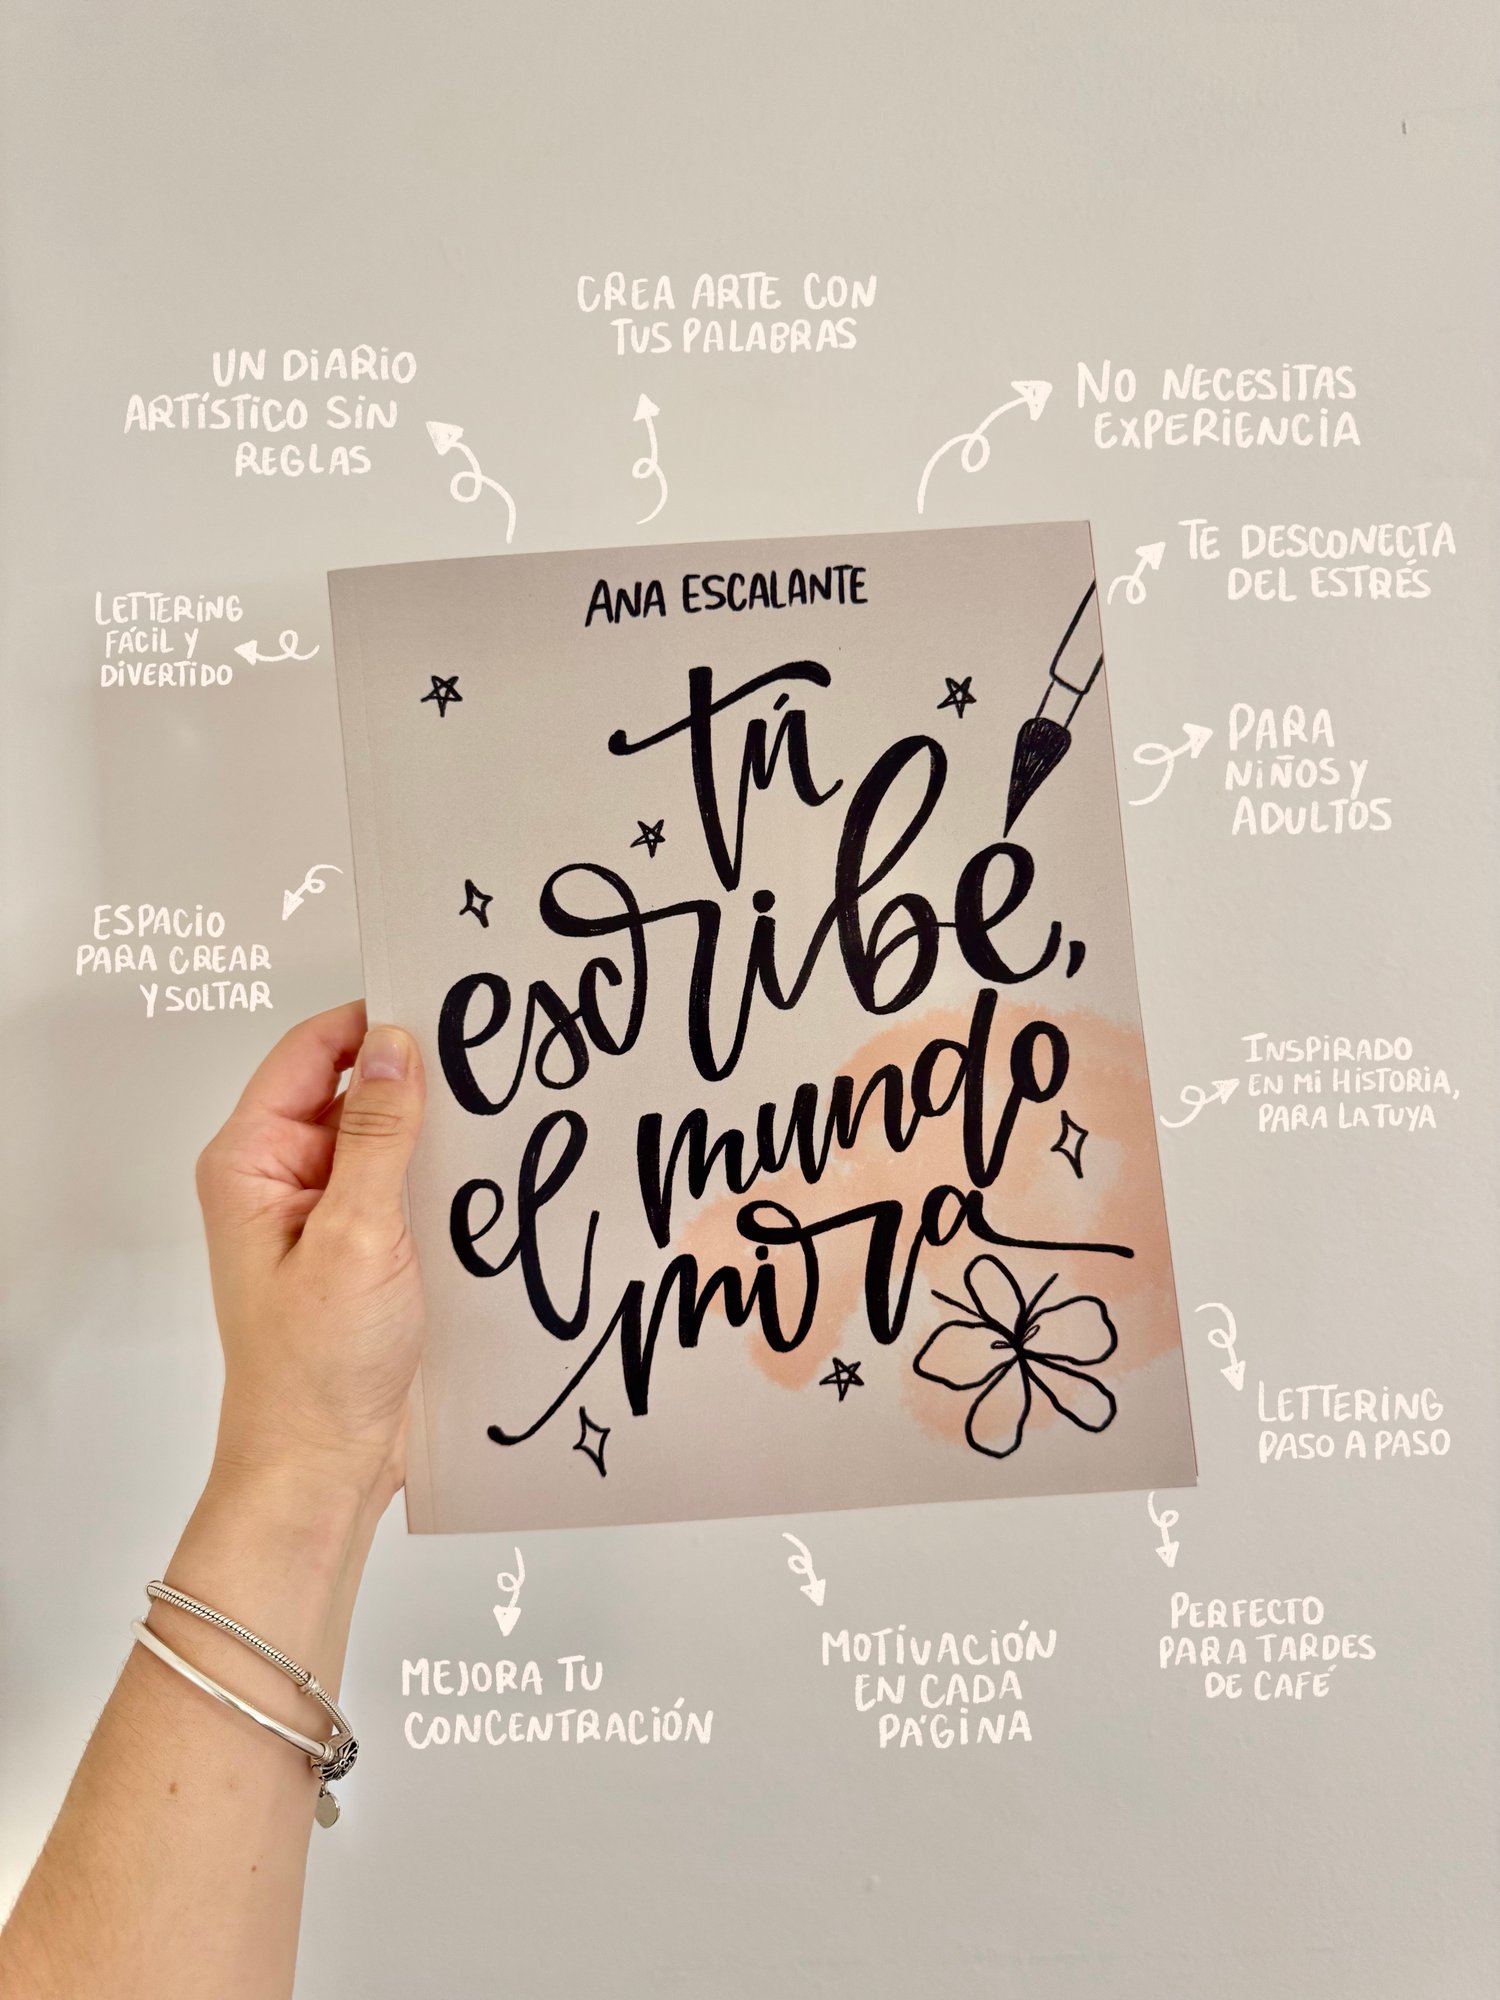 CREA ARTE CON
TUS PALABRAS
UN DIARIO
ARTÍSTICO SIN
REGLAS
NO NECESITAS
EXPERIENCIA
TE DESCONECTA
DEL ESTRÉS
LETTERING
FÁCIL Y
DIVERTIDO
ANA ESCALANTE
tú
escribe,
el mundo
mira
PARA
NIÑOS Y
ADULTOS
ESPACIO
PARA CREAR
Y SOLTAR
INSPIRADO
EN MI HISTORIA,
PARA LA TUYA
LETTERING
PASO A PASO
MEJORA TU
CONCENTRACIÓN
MOTIVACIÓN
EN CADA
PÁGINA
PERFECTO
PARA TARDES
DE CAFÉ